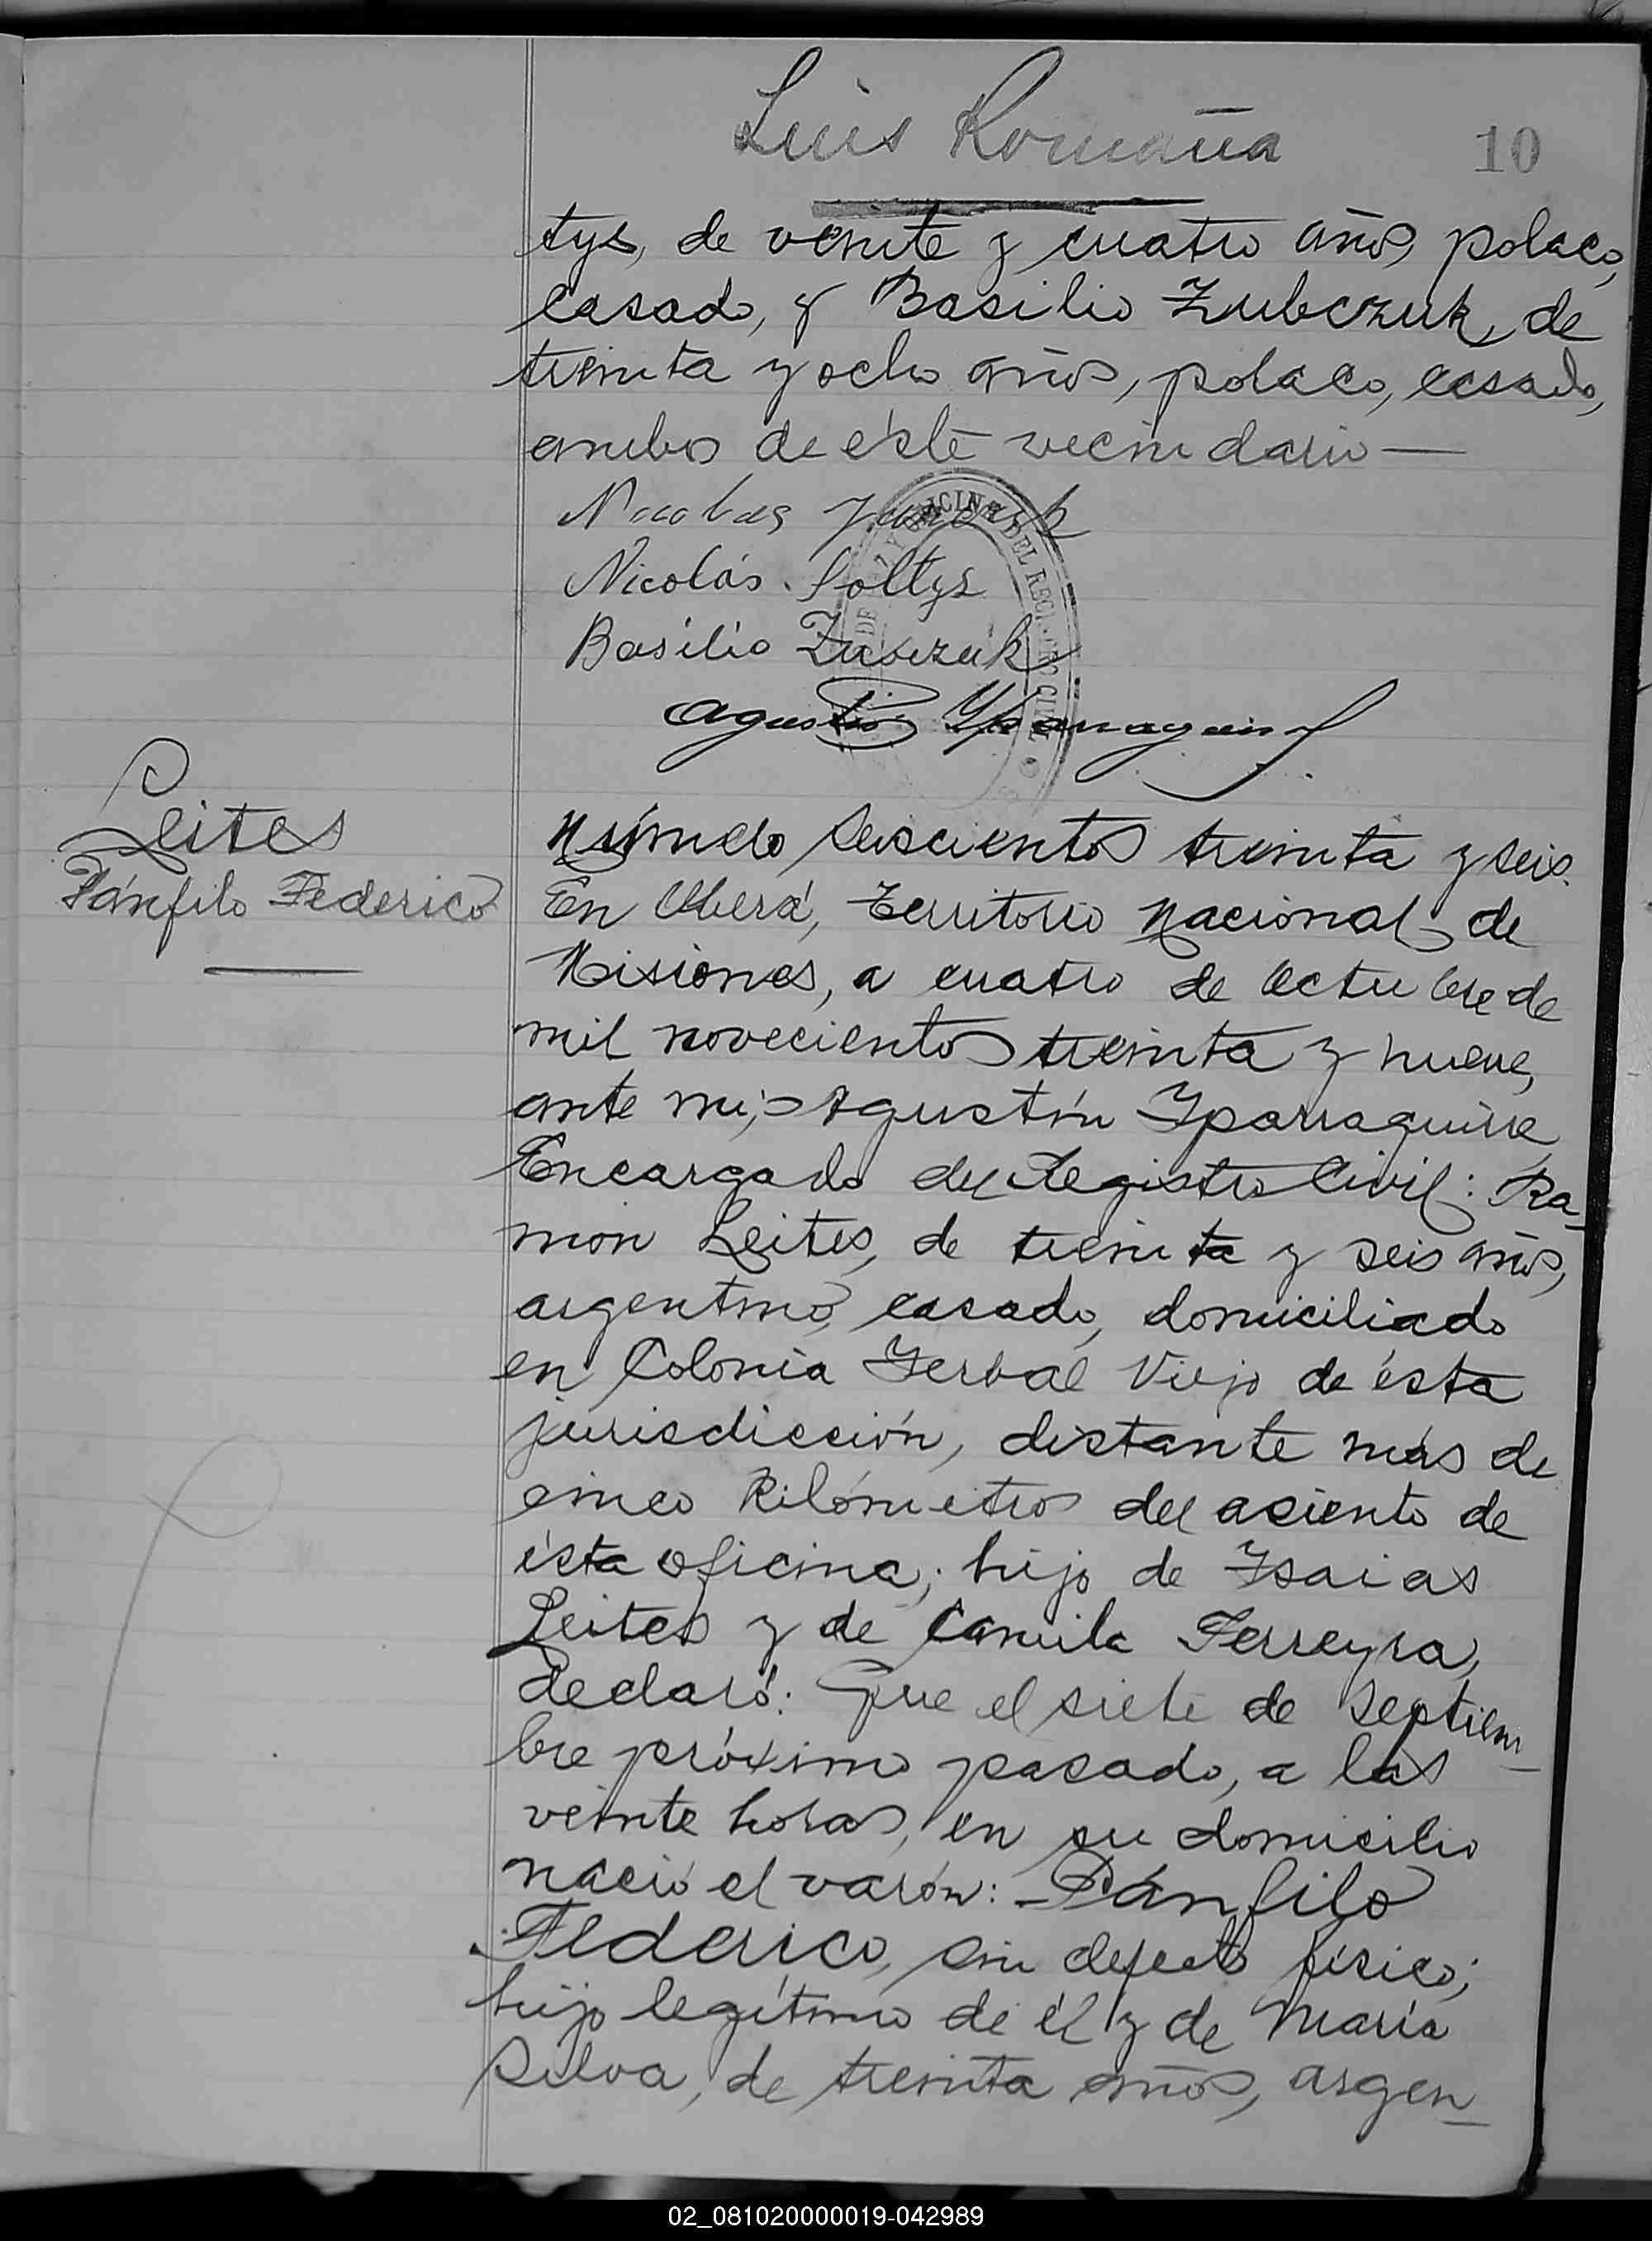 Luis Romaña
10
tys, de veinte y cuatro años, polaco,
casado, y Basilio Zubczuk, de
treinta y ocho años, polaco, casado,
ambos de éste vecindario—
Nicolas
Nicolás Soltys
Basilio Zubczuk
OFICINA DEL REGISTRO CIVIL
Agustin Yparraguirre
Leites
Pánfilo Federico
Número seiscientos treinta y seis.
En Oberá, Territorio Nacional de
Misiones, a cuatro de Octubre de
mil novecientos treinta y nueve,
ante mi, Agustín Yparraguirre
Encargado del Registro Civil: Ra-
mon Leites, de treinta y seis años,
argentino, casado, domiciliado
en Colonia Yerbal Viejo de ésta
jurisdicción, distante más de
cinco Kilómetros del asiento de
ésta oficina; hijo de Ysaias
Leites y de Camila Ferreyra,
declaró: Que el siete de Septiem-
bre próximo pasado, a las
veinte horas, en su domicilio
nació el varón: Pánfilo
Federico, sin defecto físico;
hijo legítimo de él y de María
Silva, de treinta años, argen-
02_081020000019-042989